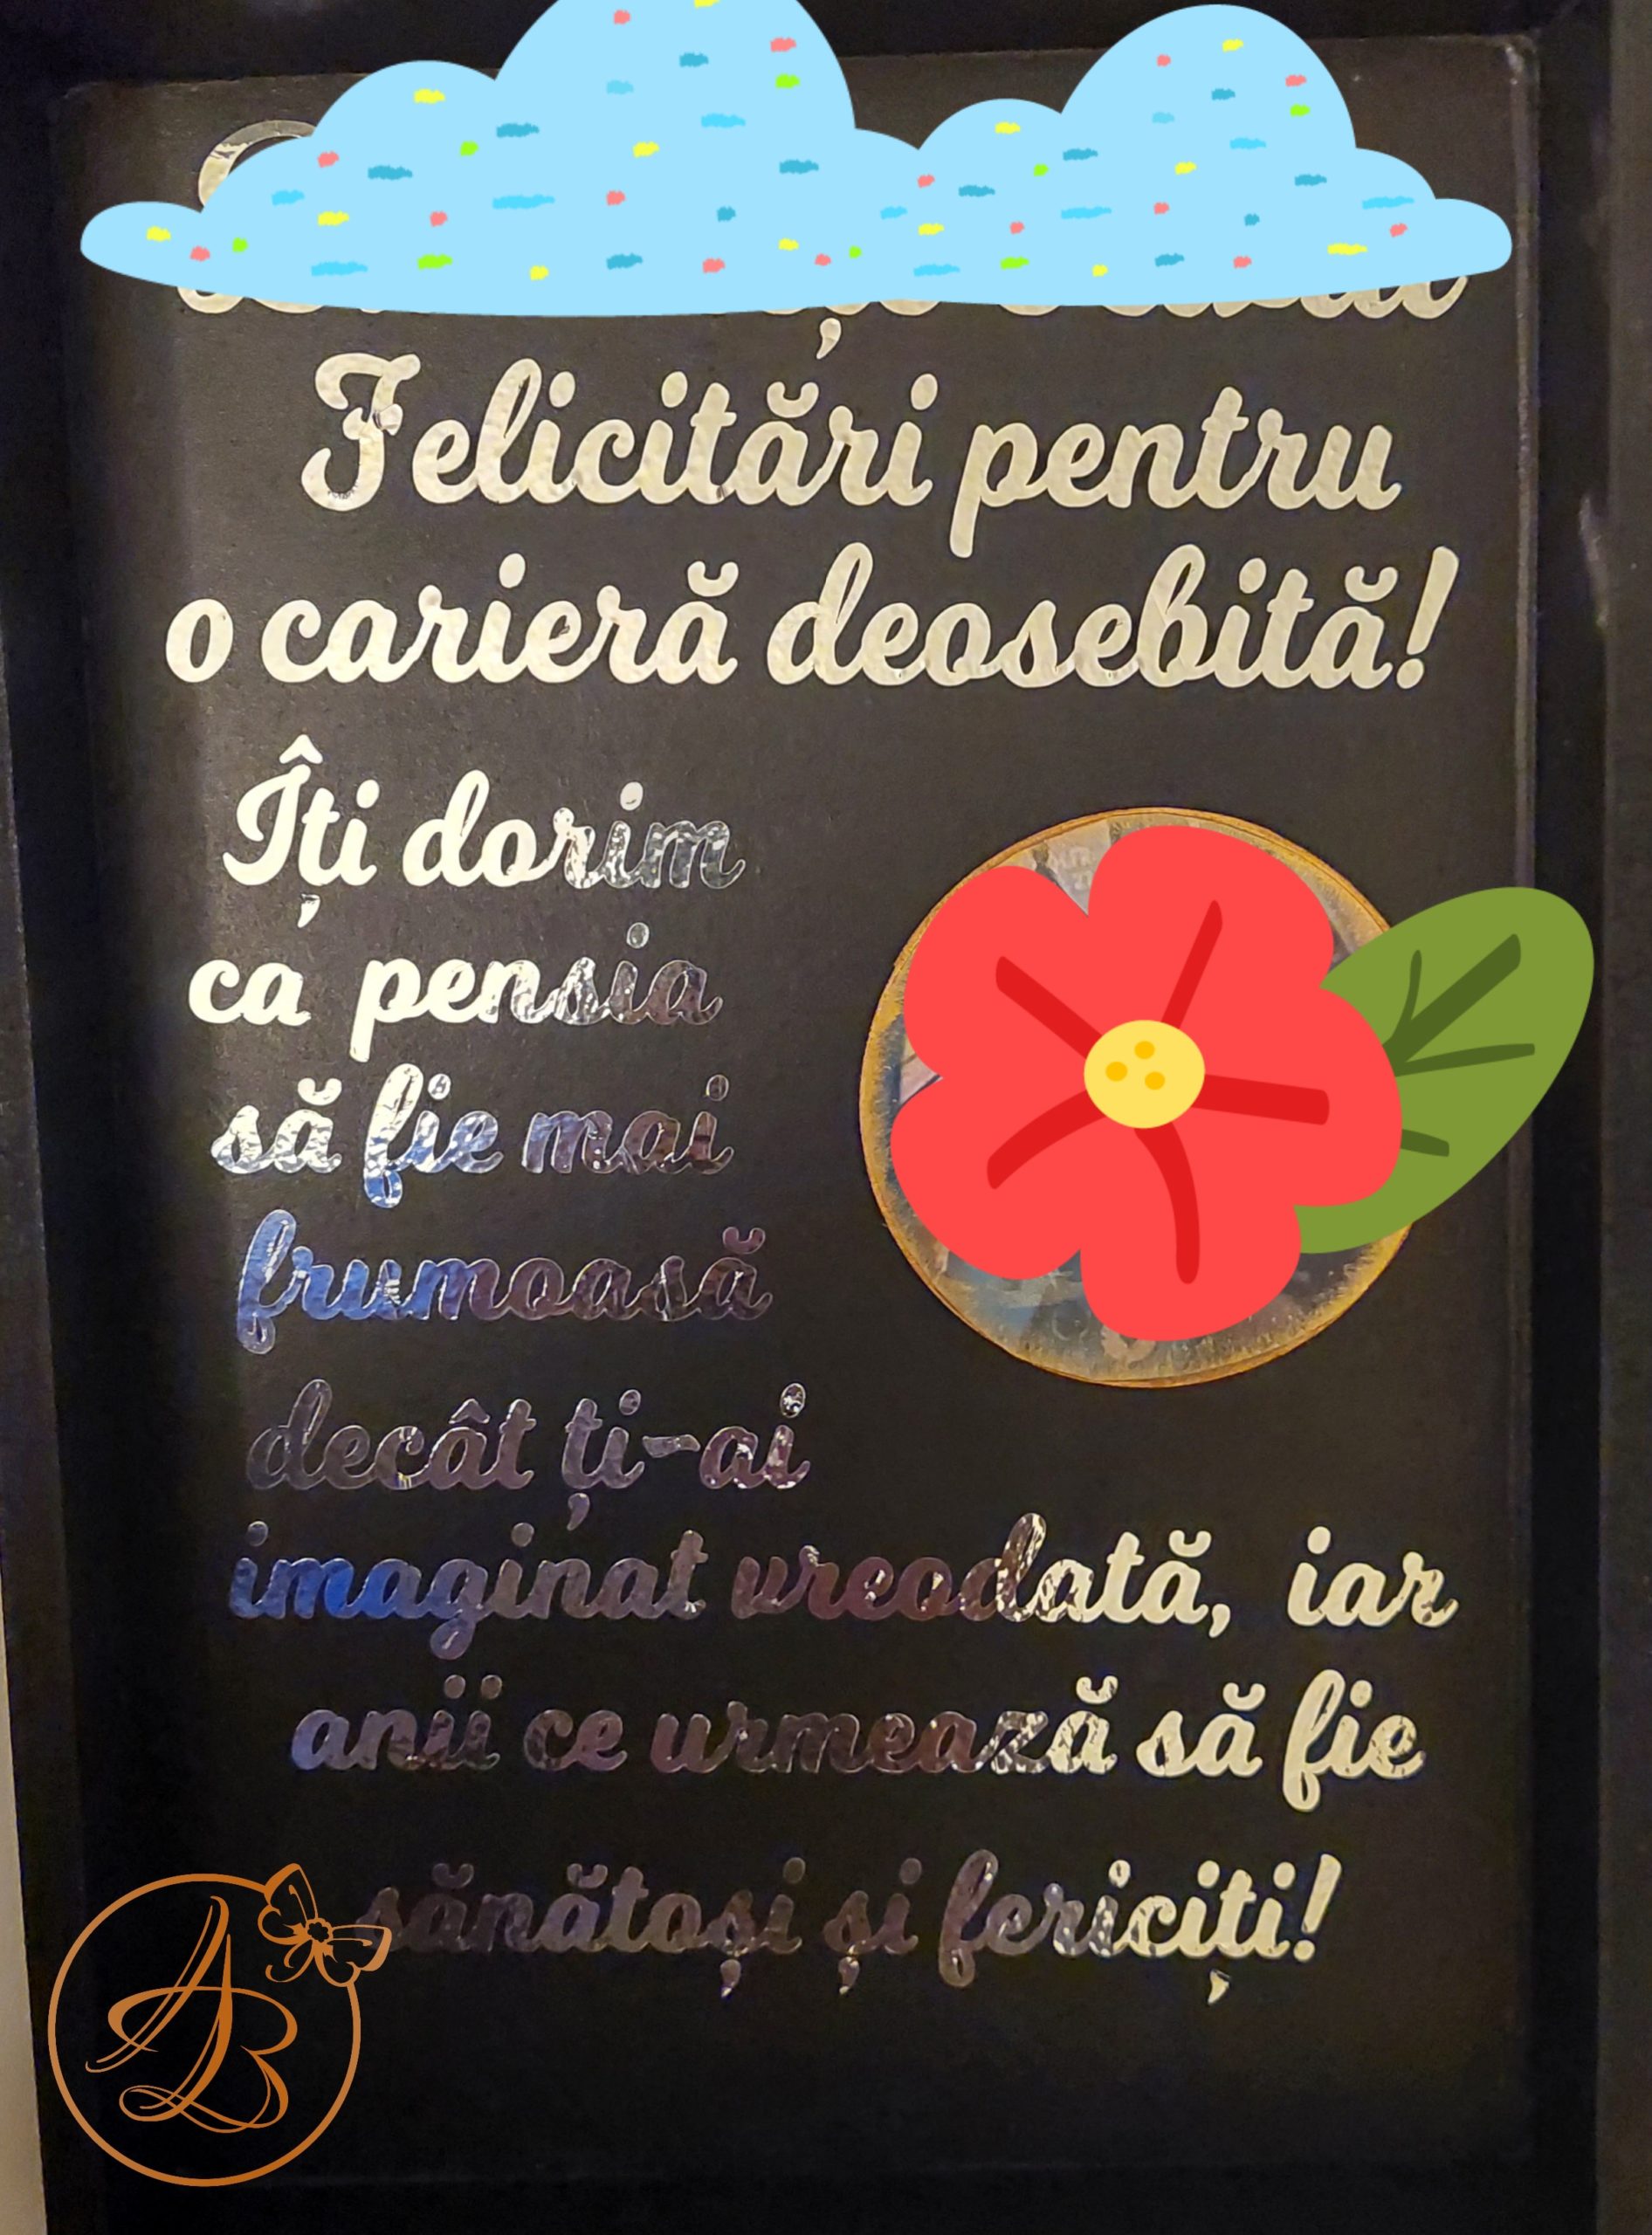 Felicitări pentru
o carieră deosebită!
Îți dorim
ca pensia
să fie mai
frumoasă
decât ți-ai
imaginat vreodată, iar
anii ce urmează să fie
sănătoși și fericiți!
AB